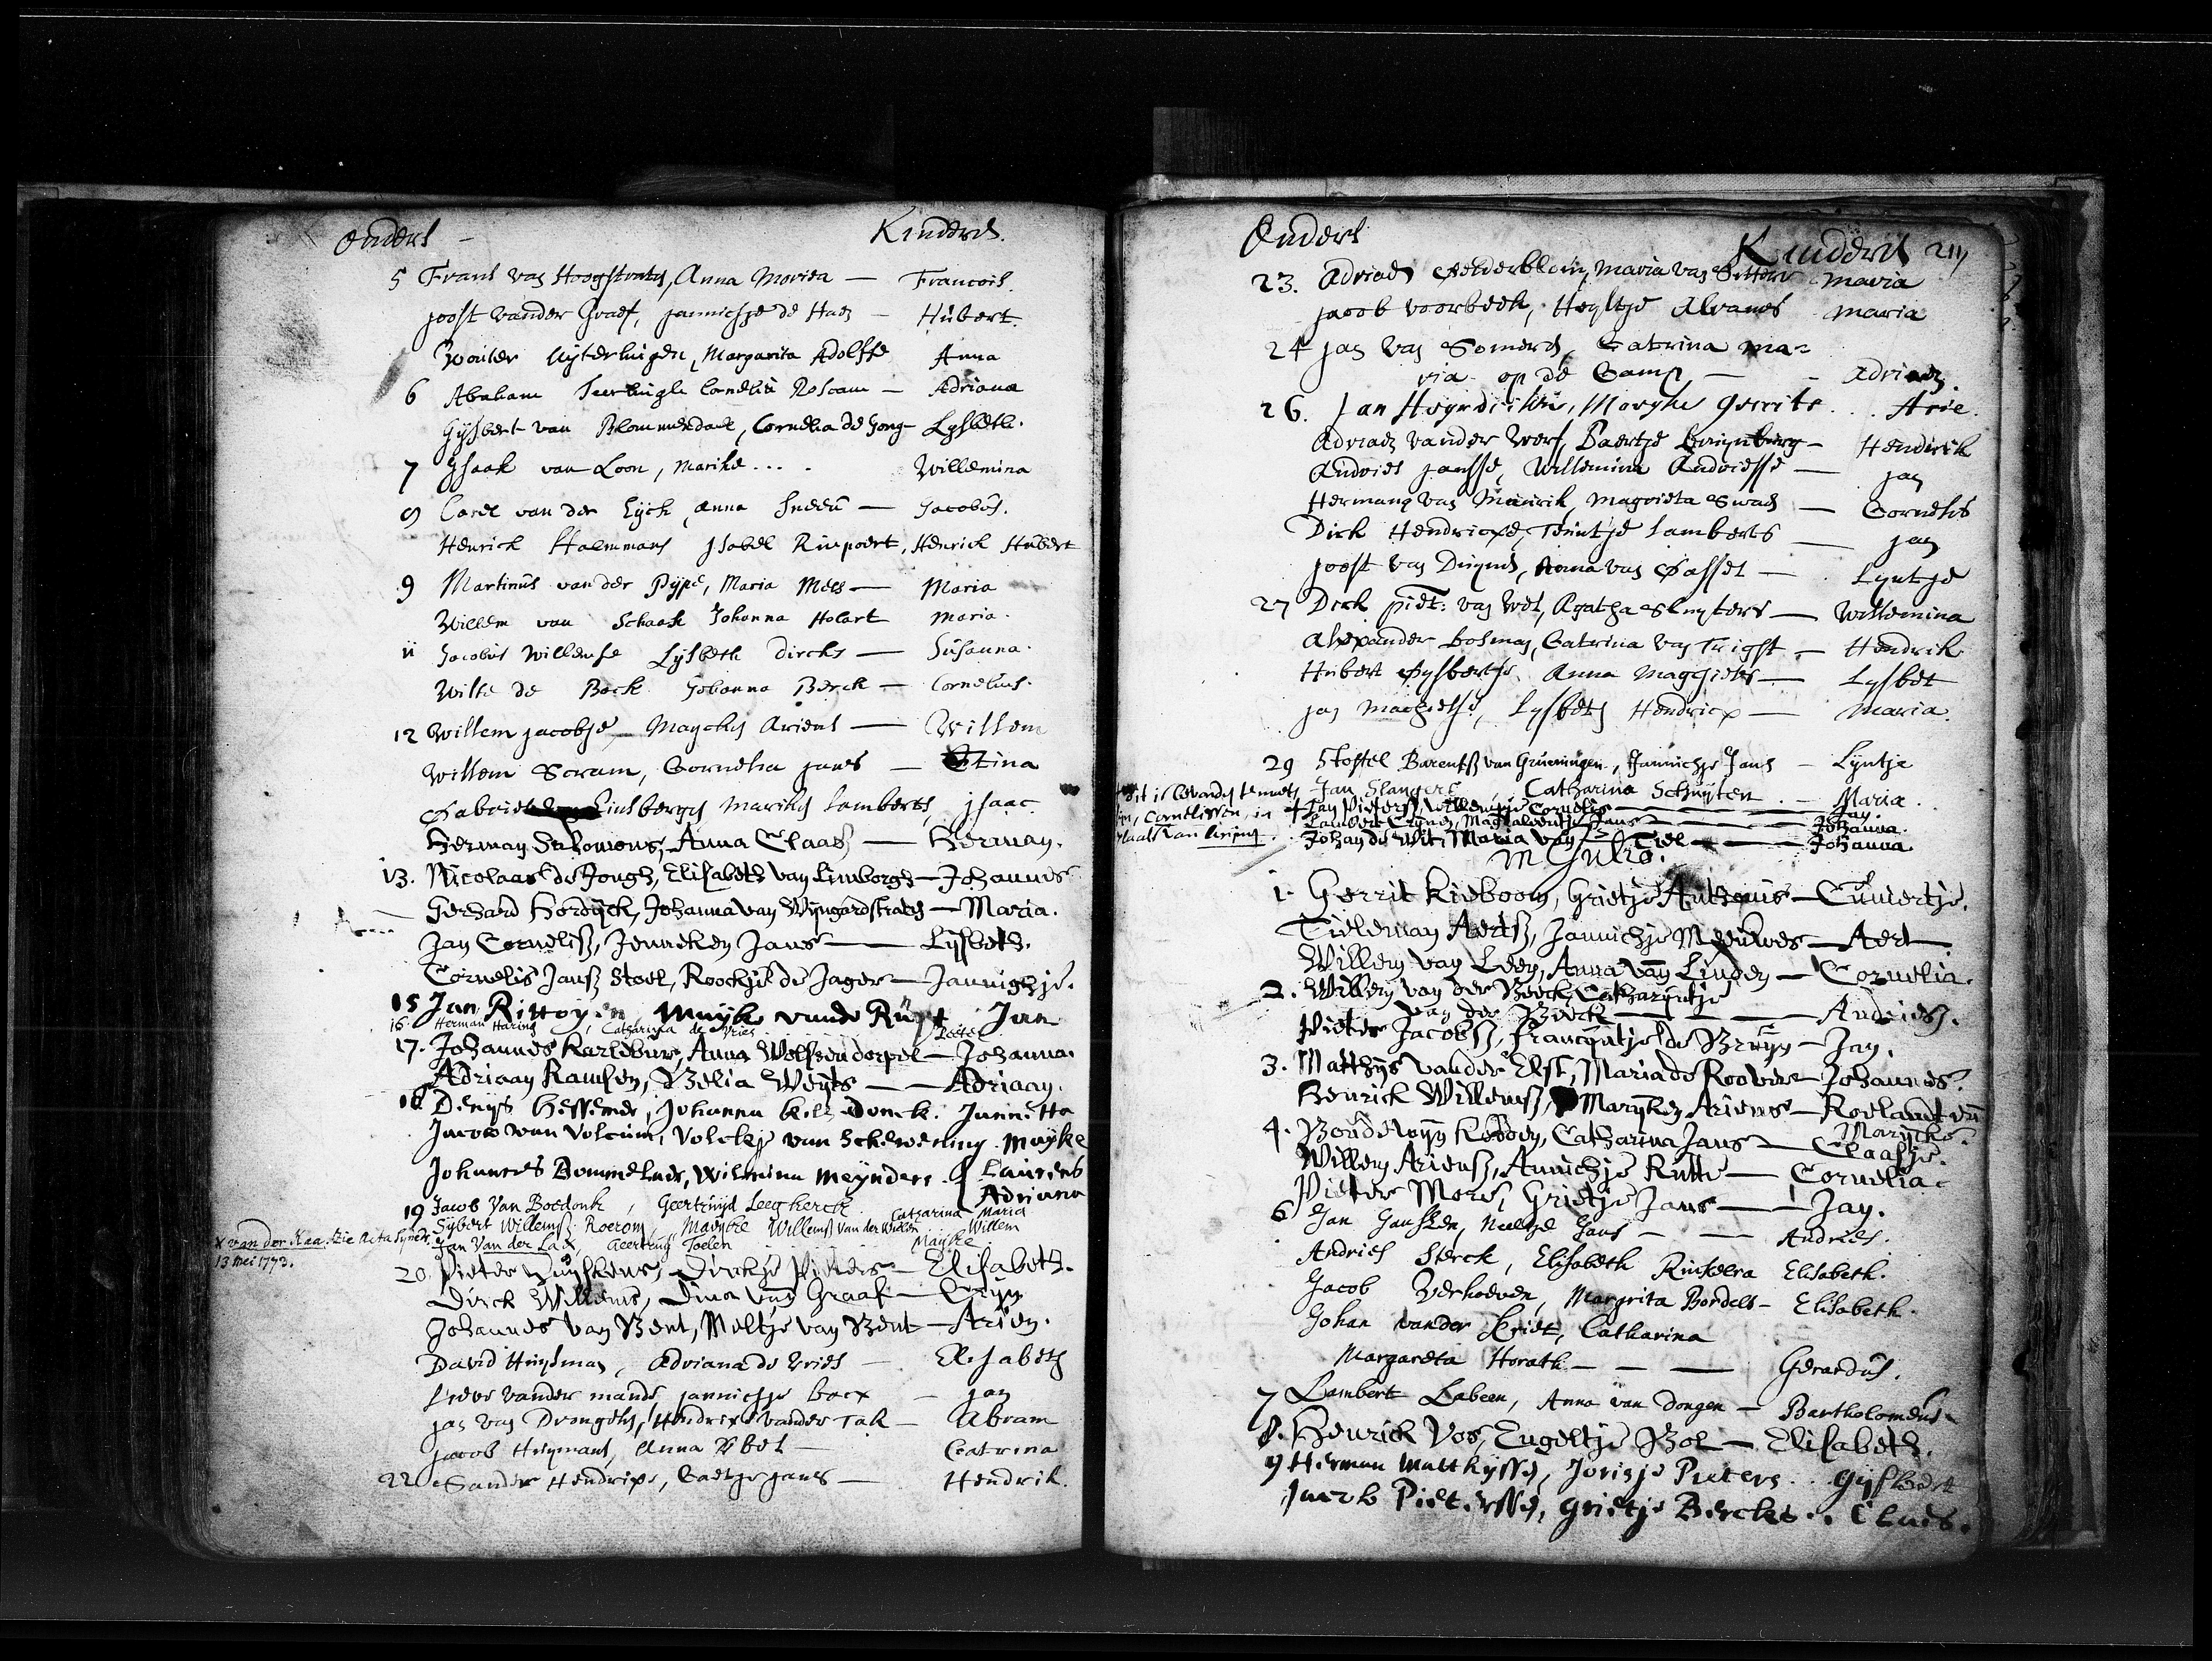 Ouders - Kinders.
5 Frans van Hoogstraten, Anna Morien — Francois.
Joost vander Graef, Jannichje de Haes — Hubert.
Wouter Uijterlingen, Margarita Adolffe Anna
6 Abraham Teerlingh Cornelia Roscam — Adriana
Gijsbert van Blommendael, Cornelia de Jong — Lysbeth.
7 Jsaak van Loon, Marike ... . Willemina
9 Carel van der Eijck, Anna — Jacobus.
Henrick Halmmans Jsabel Rinpoert, Henrick Hubert
9 Martinus van der Pijpe, Maria Mels — Maria
Willem van Schaak Johanna Holart Maria.
ii Jacobus Willemse Lijsbeth Dircks — Susanna.
Wilte de Bock Johanna Berck — Cornelius.
12 Willem Jacobse, Maychen Ariens — Willem
Willem Scram, Cornelia Jans — Stina
Gabriel Einsbergen Mariken Lamberts, Jsaac
Herman Salomons, Anna Claasz — Herman.
13. Nicolaas de Jongh, Elisabeth van Limborgh — Johannes
Gerhard Hordijck, Johanna van Wijngardstraten — Maria.
Jan Cornelisz, Jenneken Jans — Lijsbeth.
Cornelis Jansz Stoel, Roockje de Jager — Jannighje.
15 Jan Rittoyen, Mayke vande Rust Jan
16. Herman Haring, Catharina de Vries Peete
17. Johannes Karlebur, Anna Wolffendorpel — Johanna.
Adriaan Ramsen, Belia Weijts — Adriaan.
18 Denys Hessemer, Johanna kils donck. Jannetta
Jacob van Volcum, Volckje van Schewening. Mayke
Johannes Bommelaer, Wilmina Meynders. { Laurens
Adriana
19 Jacob Van Boedonk, Geertruijd Leegkerck Catharina Maria
Sijbert Willemsz. Roerom, Mayke Willemsz van der Wielen Willem
Jan Van der Lax, Geertruy Toelen Mayke
x van der Kaa. Zie Acta Synedr. 13 Mei 1773.
20. Pieter Vuijskens, Dirckje Pieters — Elisabeth.
Dirck Willems, Dina van Graaf — Crijn
Johannes van Bent, Meltje van Bent — Arien.
David Huijsman, Adriana de Vries — Elisabeth
Lieve vander mande, Jannichje bocx — Jan
Jan van Drongelen, Hendrixe vander Tak — Abram
Jacob Huijmans, Anna Abel — Catrina
22 Sander Hendrixe, Gaetje Jans — Hendrik.
Ouders Kinders 211
23. Adriaen Gelderblom, Maria van Sittere Maria
Jacob Voorbeek, Heyltje Alvanes Maria
24 Jan van Someren, Catrina Ma=
ria op de Camp — Adriaen.
26. Jan Heyndricksen, Mayke Gerrits . . . Arie.
Adriaen vander Werf, Baertje Cruynburg — Hendrick
Andries Jansse, Willemina Andriesse — Jan
Herman van Manrik, Magrieta Swaen — Cornelis
Dirk Hendricxe, Teuntje Lamberts — Jan
Joost van Duynen, Anna van Gassel — Lyntje
27 Dirk Piet: van Wel, Agatha Sluyters — Willemina
Alexander Bosman, Catrina van Trigst — Hendrik
Hubert Gysbertse, Anna Maggiels — Lysbet
Jan Machielse, Lysbeth Hendricx — Maria.
29 Stoffel Barentsz van Gruiningen, Jannichje Jans — Lyntje
Jan Slangert, Catharina Schuyten. — Maria.
Jan Pietersz, Willempje Cornelis — Jan.
Lambert Crynen, Magdaleentje Jans — Johanna.
Johan de Wit, Maria van Tiel — Johanna.
dit is bevonden te moeten sijn, Cornelissen, in plaats van Crijnen.
in Julio.
1. Gerrit Kieboom, Grietje Anthonis — Cuniertje.
Tieleman Aertsz, Jannichje Meeuwes — Aert
Willem van Leen, Anna van Linden — Cornelia.
2. Willem van der Beeck, Catharijntje
van der Beeck — Andries.
Pieter Jacobsz, Francijntje de Bruyn — Jan.
3. Matthijs vander Elst, Maria de Roovere — Johannes.
Henrick Willemsz, Marijken Ariens — Roelandt en
Marijcke.
4. Boudewyn Kobben, Catharina Jans — Claasje.
Willem Ariensz, Annichje Rutte — Cornelia.
Pieter More, Grietje Jans — Jan.
6 Jan Jansken, Neeltje Jans — Andries.
Andries Sterck, Elisabeth Rinkelra Elisabeth.
Jacob Verhoeven, Margrita Bordels — Elisabeth.
Johan vander Kriet, Catharina
Margareta Horath — Gerardus.
7 Lambert Labeen, Anna van Dongen — Bartholomeus
8. Henrick Vos, Engeltje Bol — Elisabeth.
9 Herman Matthijssen, Jorisje Pieters . . Gysbert
Jacob Pieterssen, Grietje Berckes . . Claes.